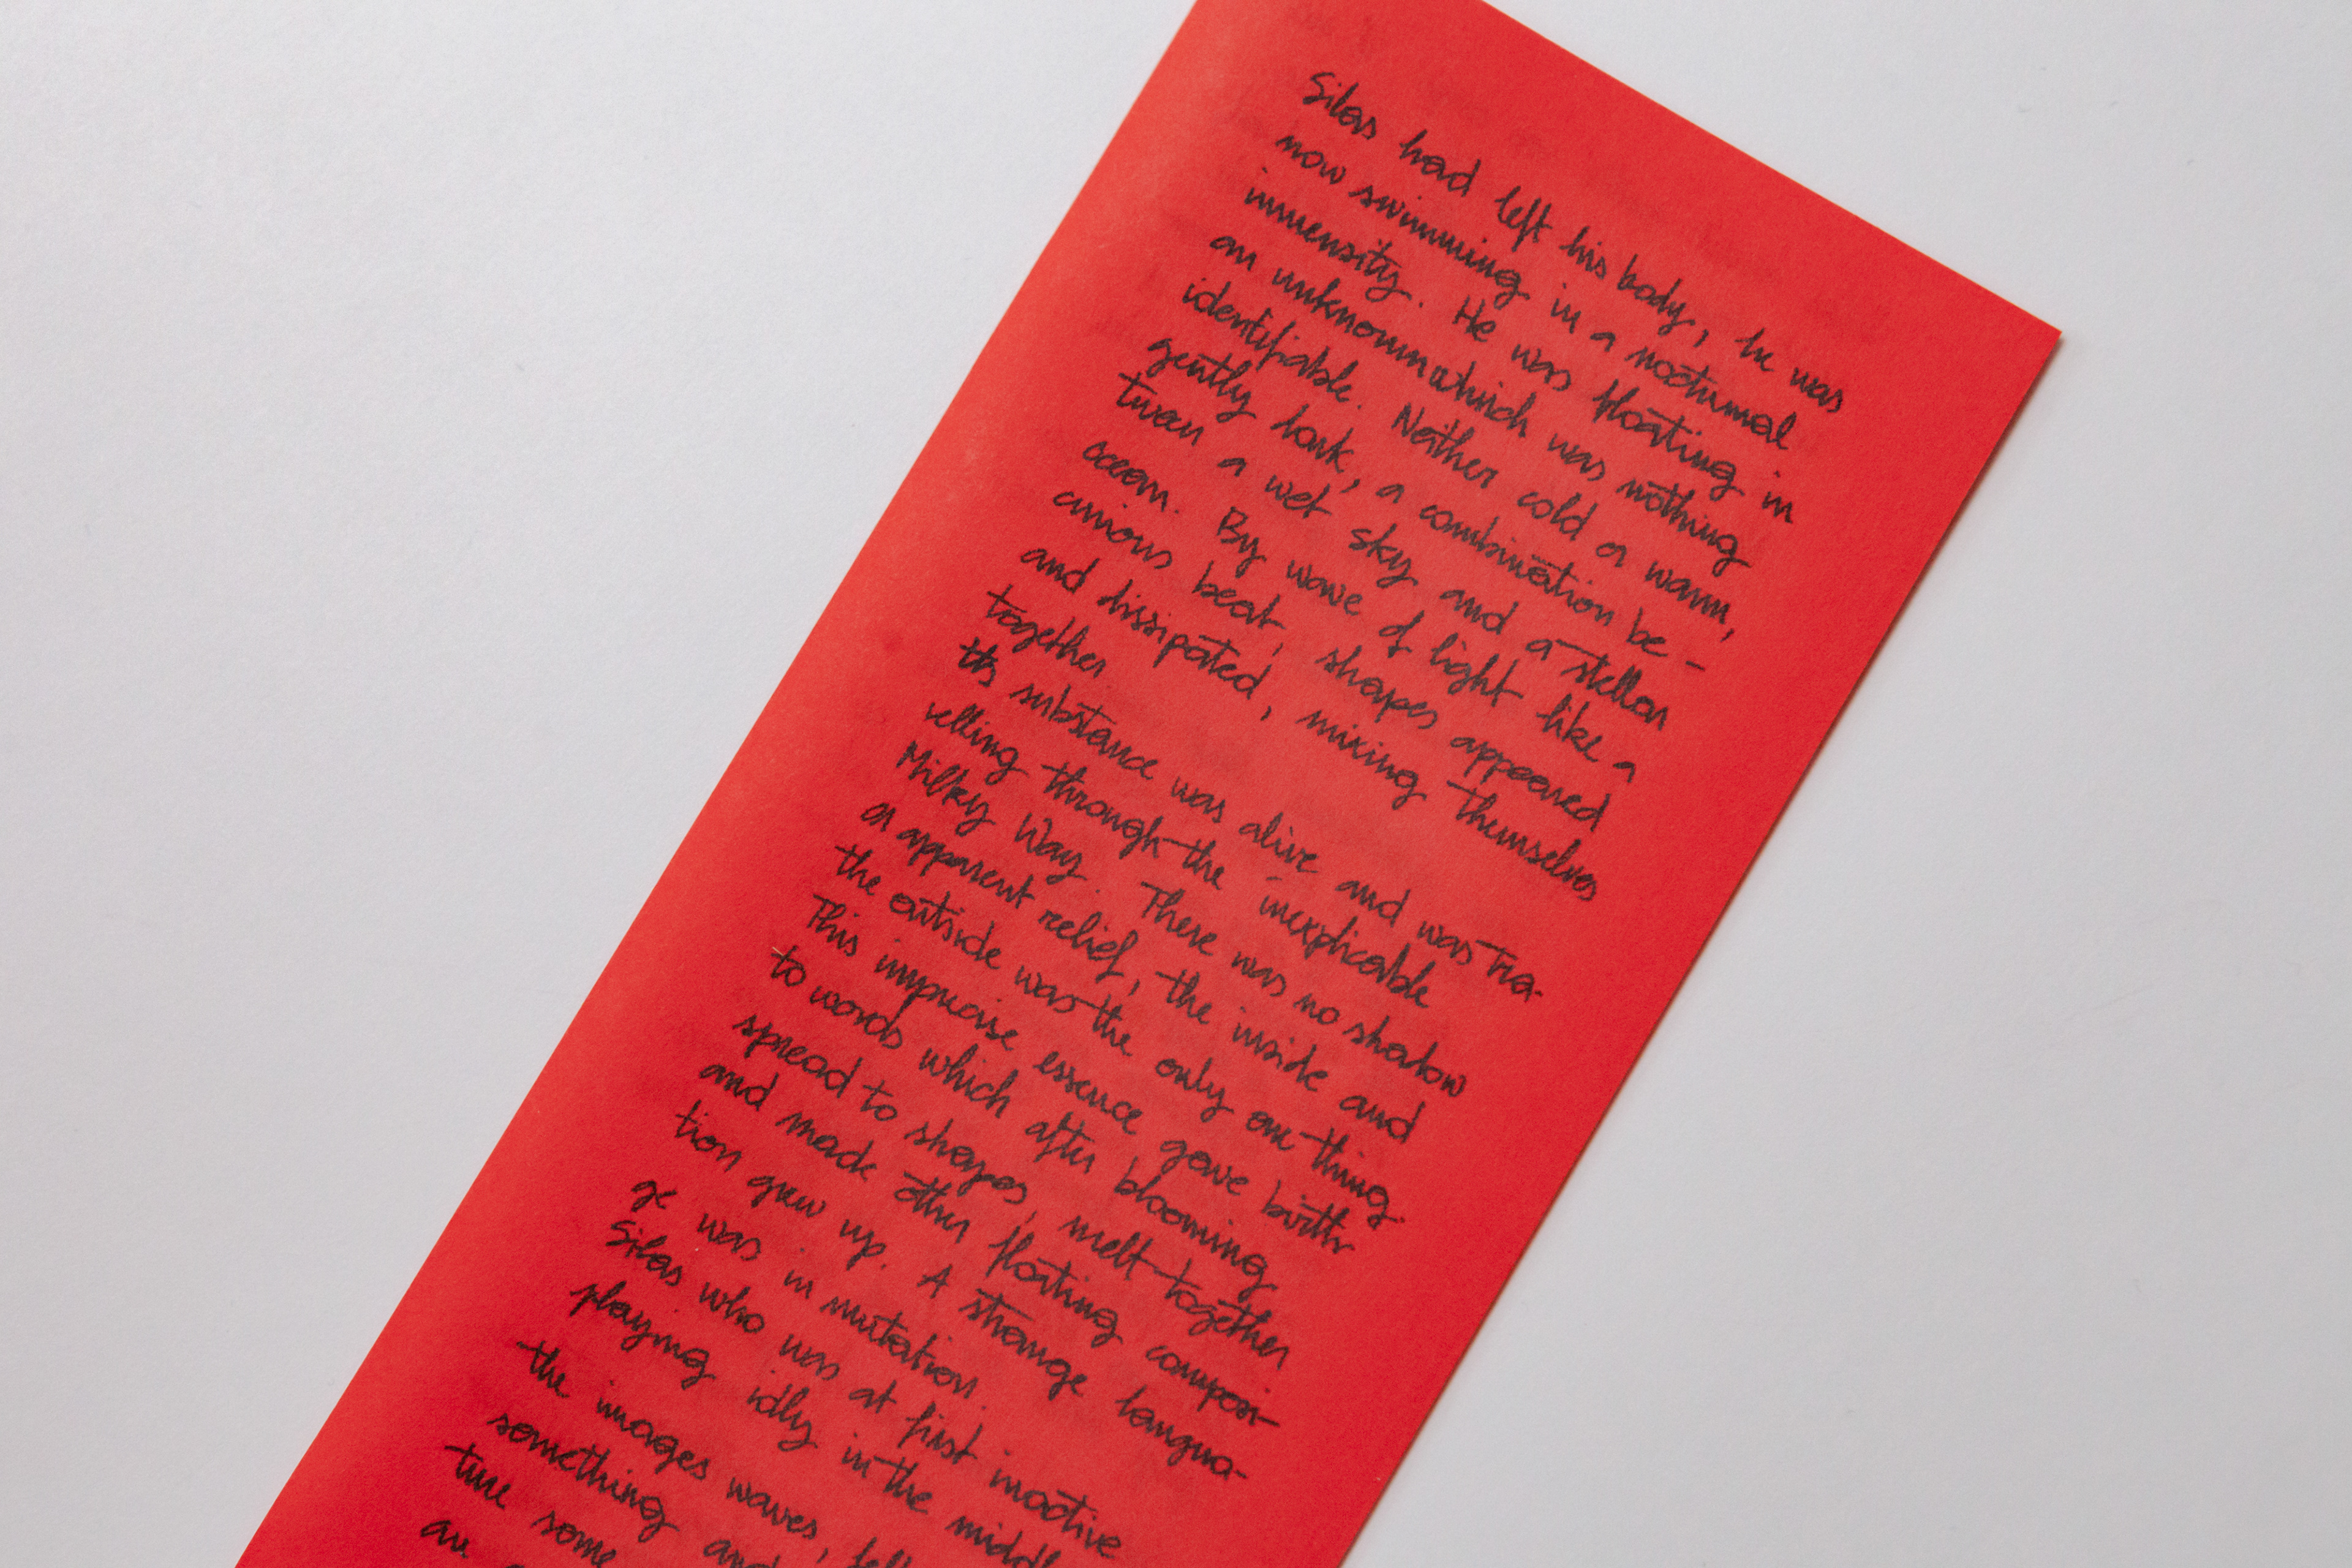 Silas had left his body, he was
now swimming in a nocturnal
immensity. He was floating in
an unknown which was nothing
identifiable. Neither cold or warm,
gently dark, a combination be-
tween a wet sky and a stellar
ocean. By wave of light like a
curious beat, shapes appeared
and dissipated, mixing themselves
together.
Its substance was alive and was tra-
velling through the inexplicable
Milky Way. There was no shadow
or apparent relief, the inside and
the outside was the only one thing.
This imprecise essence gave birth
to words which after blooming
spread to shapes, melt together
and made other floating composi-
tion grew up. A strange langua-
ge was in mutation.
Silas who was at first inactive
playing idly in the middl
the images waves, fell
something and
ture some